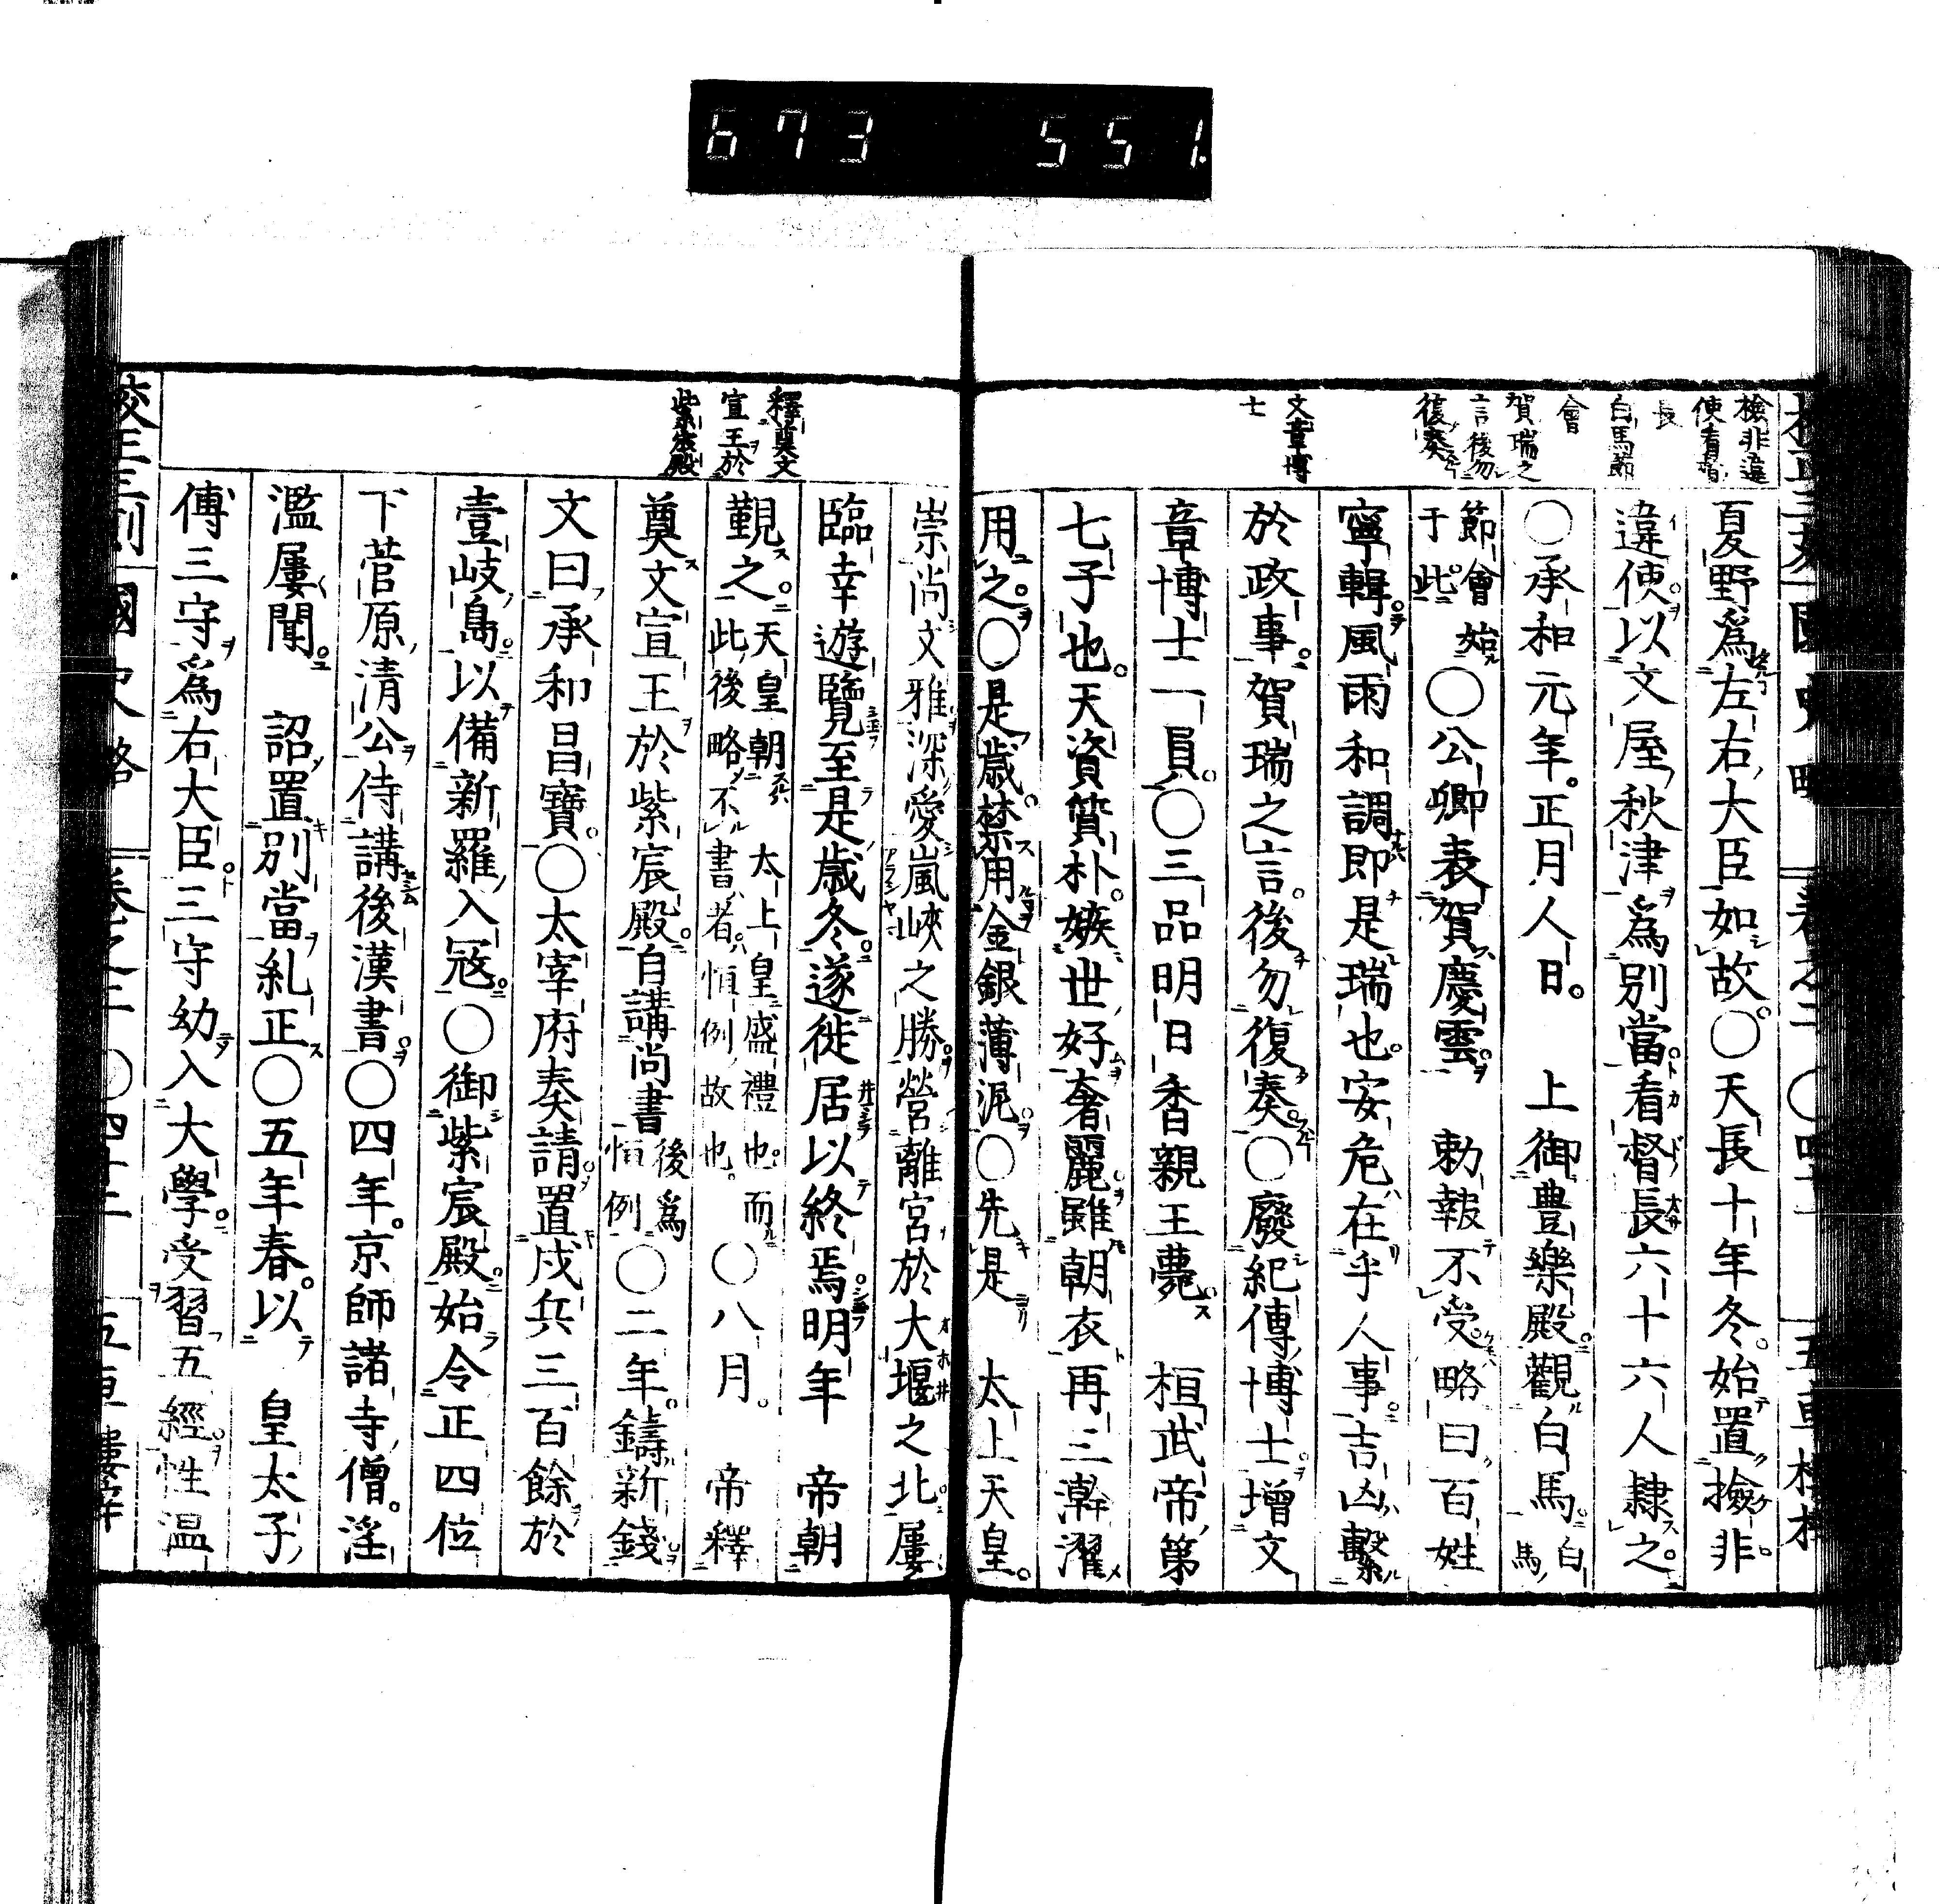 673 551.
檢非違
使看督
長
白馬節
會
賀瑞之
言後勿
復奏
文章博
士
夏野爲左右大臣如故〇天長十年冬始置撿非
違使以文屋秋津爲別當看督長六十六人隷之
〇承和元年正月人日 上御豊樂殿觀白馬白馬
節會始于此〇公卿表賀慶雲 勅報不受略曰百姓
寧輯風雨和調即是瑞也安危在乎人事吉凶繫
於政事賀瑞之言後勿復奏〇廢紀傳博士増文
章博士一員〇三品明日香親王薨 桓武帝第
七子也天資質朴嫉世好奢麗雖朝衣再三澣濯
用之〇是歳禁用金銀薄泥〇先是 太上天皇
釋奠文
宣王於
紫宸殿
崇尚文雅深愛嵐峽之勝營離宮於大堰之北屢
臨幸遊覽至是歳冬遂徙居以終焉明年 帝朝
覲之天皇朝 太上皇盛禮也而此後略不書者恒例故也〇八月 帝釋
奠文宣王於紫宸殿自講尚書後爲恒例〇二年鑄新錢
文曰承和昌寶〇太宰府奏請置戍兵三百餘於
壹岐島以備新羅入冦〇御紫宸殿始令正四位
下菅原清公侍講後漢書〇四年京師諸寺僧淫
濫屢聞 詔置別當糺正〇五年春以 皇太子
傅三守爲右大臣三守幼入大學受習五經性温
國史略